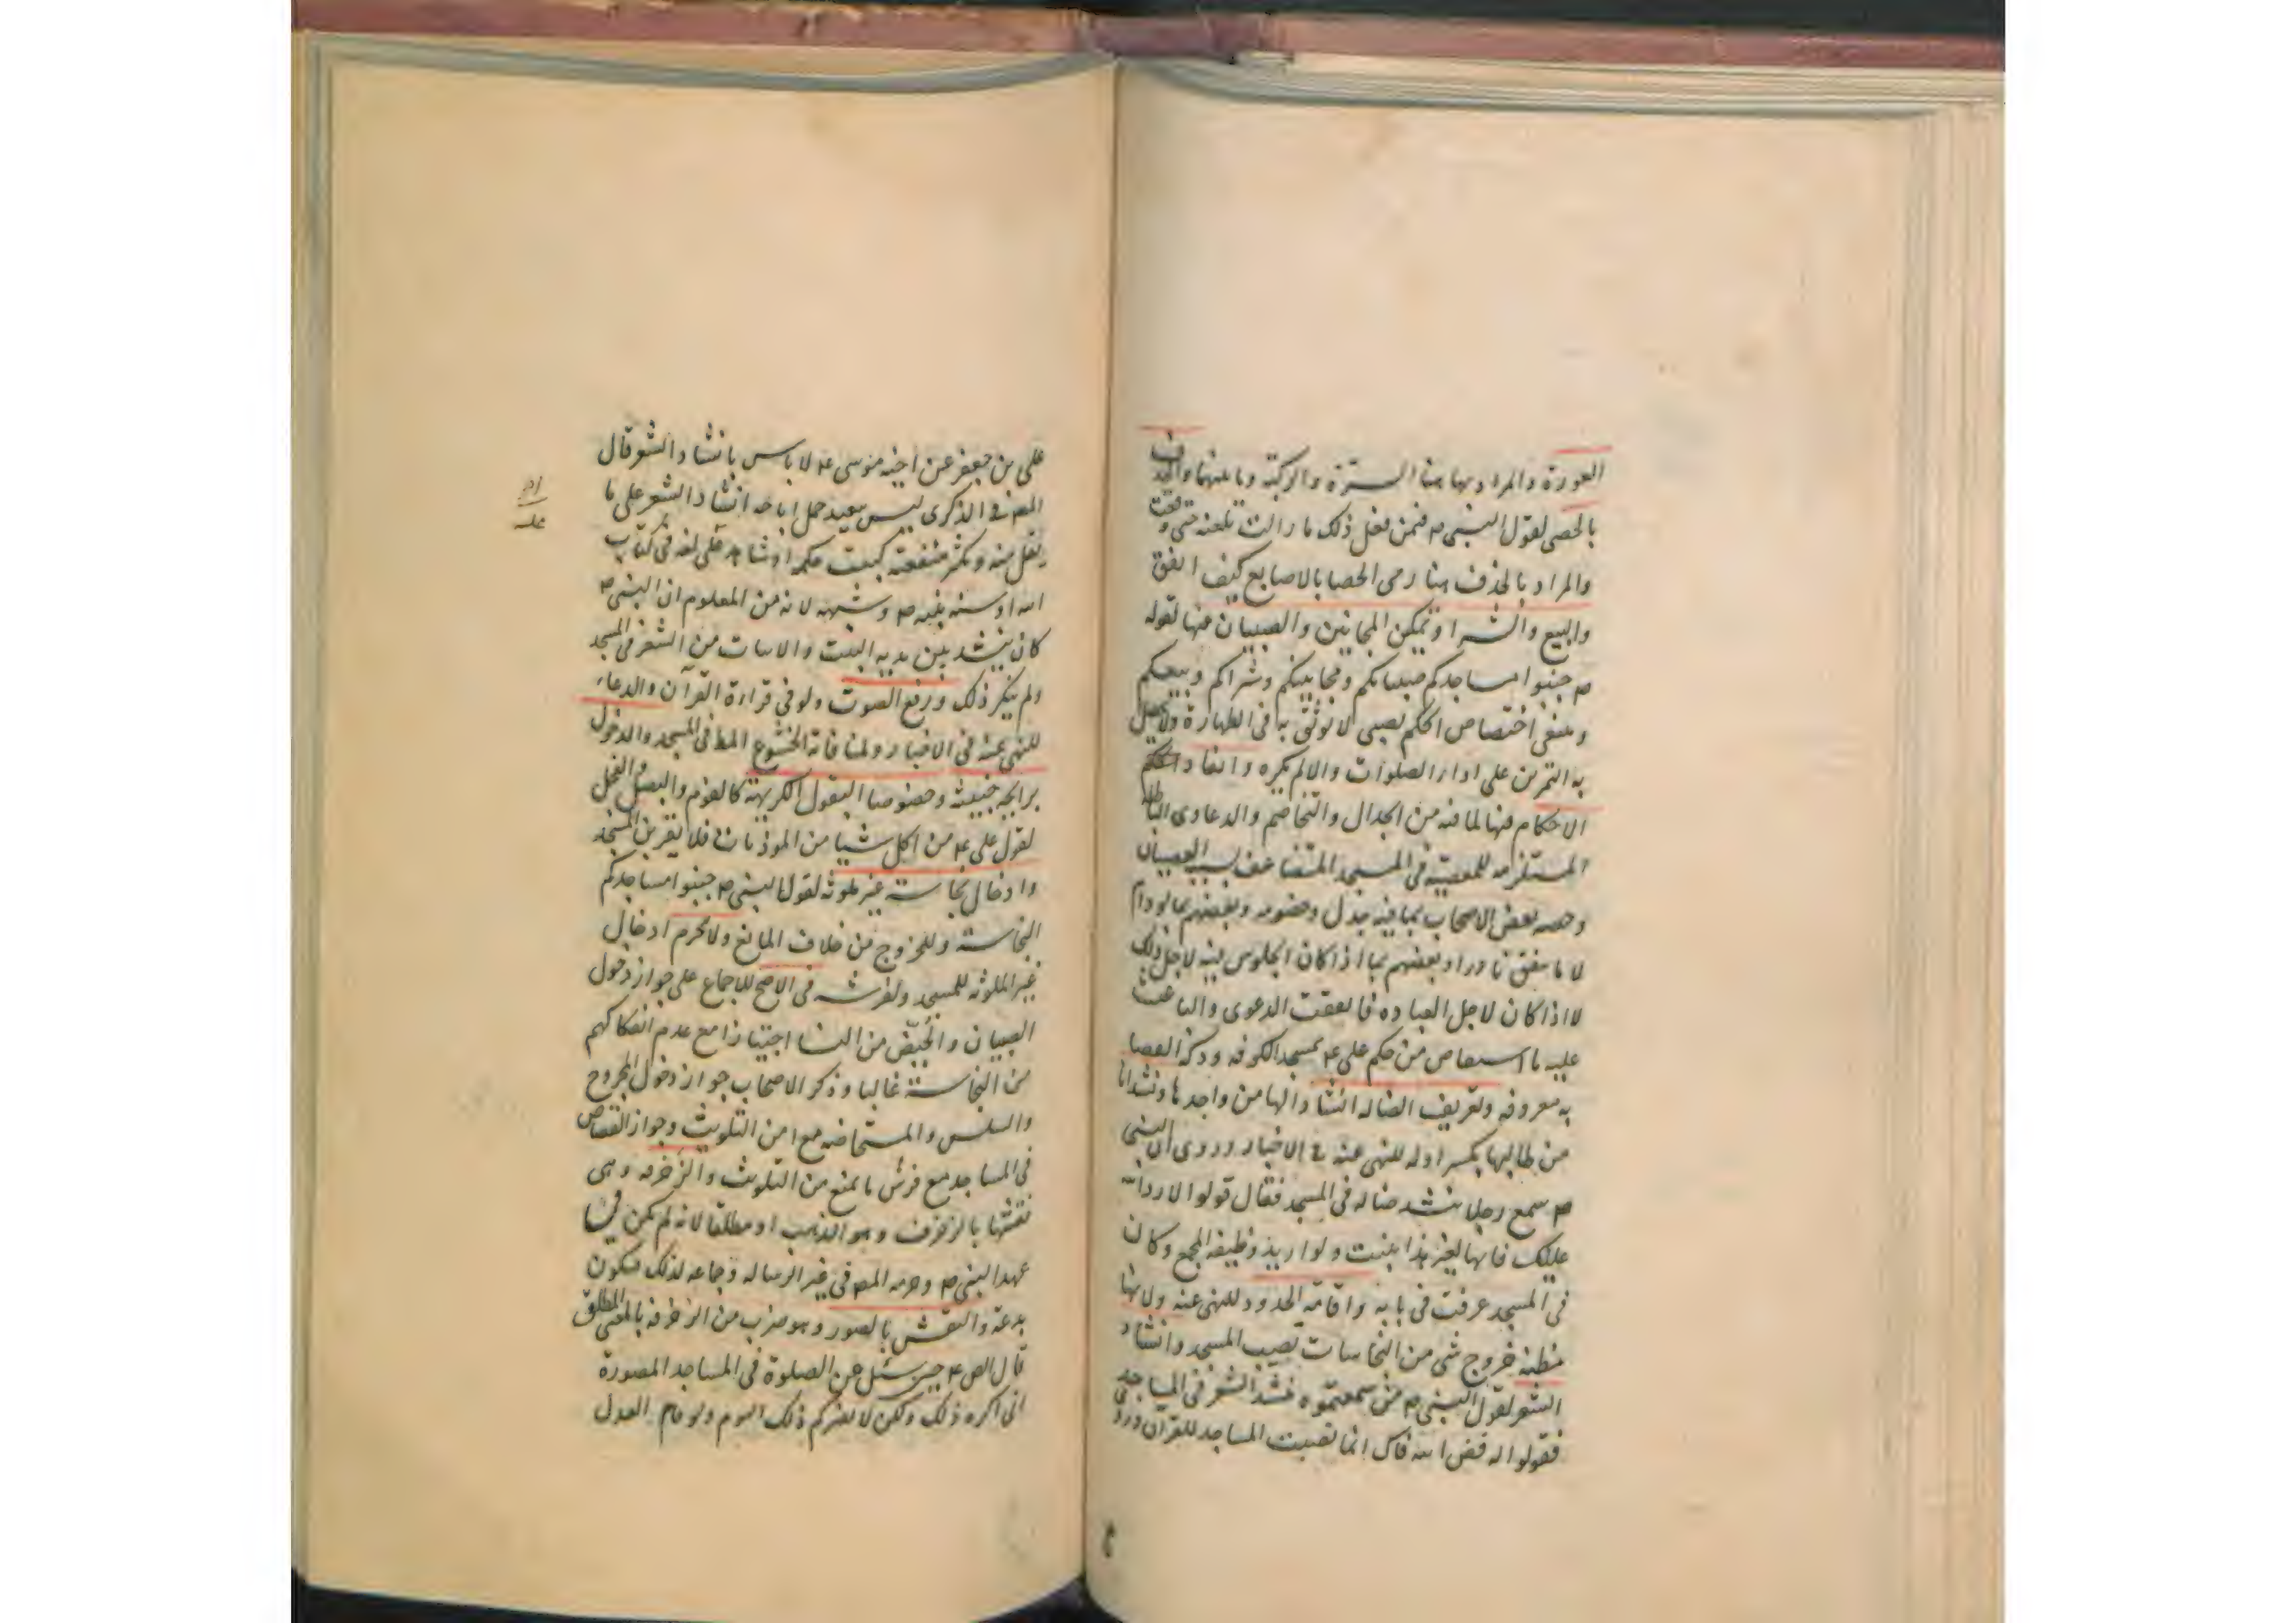 العورة والمراد بها هنا السترة والركبة وما بينهما والحذف
بالحصى لقول النبي ص فمن فعل ذلك ما زالت تلعنه حتى وقعت
والمراد بالحذف هنا رمى الحصا بالاصابع كيف اتفق
والبيع والشرا وتمكين المجانين والصبيان منها لقوله
ص جنبوا مساجدكم صبيانكم ومجانينكم وشراكم وبيعكم
وينبغى اختصاص الحكم بصبى لا يوثق به فى الطهارة
به التمرين على اداء الصلوات والا لم يكره وانفاذ
الاحكام فيها لما فيه من الجدال والتخاصم والدعاوى الباطلة
المستلزمه للمعصية فى المسجد المتضاعف بسببه العصيان
وخصه بعض الاصحاب بما فيه جدل وخصومه وبعضهم بما لو دام
لا ما يتفق نادرا وبعضهم بما اذا كان الجلوس فيه لاجل ذلك
لا اذا كان لاجل العباده فاتفقت الدعوى والباعث
عليه ما استفاض من حكم على ع بمسجد الكوفه ودكة القضا
به معروفه وتعريف الضاله انشادا لها من واجدها ونشدانا
من طالبها بكسر اوله للنهى عنه فى الاخبار وروى ان النبى
ص سمع رجلا ينشد ضاله فى المسجد فقال قولوا لا رد الله
عليك فانها لغير هذا بنيت ولو اريد وظيفة المجمع وكان
فى المسجد عرفت فى بابه واقامة الحدود للنهى عنه ولانها
مظنه خروج شى من النجاسات تصيب المسجد وانشاد
الشعر لقول النبى ص من سمعتموه ينشد الشعر فى المساجد
فقولوا له فض الله فاك انما نصبت المساجد للقرآن وروى
على بن جعفر عن اخيه موسى ع لا باس بانشاد الشعر قال
المص فى الذكرى ليس ببعيد حمل اباحة انشاد الشعر على ما
يقل منه وتكثر منفعته كبيت حكمه او شاهد على لغه فى كتاب
الله او سنة نبيه ص وشبهه لانه من المعلوم ان النبى ص
كان ينشد بين يديه البيت والابيات من الشعر فى المسجد
ولم ينكر ذلك ورفع الصوت ولو فى قراءة القرآن والدعاء
للنهى عنه فى الاخبار ولمنافاته الخشوع المط فى المسجد والدخول
برايحه خبيثه وخصوصا البقول الكريهة كالثوم والبصل والفجل
لقول على ع من اكل شيا من الموذيات فلا يقربن المسجد
وادخال نجاسة غير ملوثه لقول النبى ص جنبوا مساجدكم
النجاسة وللخروج من خلاف المانع ولا يحرم ادخال
غير الملوثه للمسجد ولفرشه فى الاصح للاجماع على جواز دخول
الصبيان والحيّض من النسا اجتيازا مع عدم انفكاكهم
من النجاسة غالبا وذكر الاصحاب جواز دخول المجروح
والسلس والمستحاضه مع امن التلويث وجواز القصاص
فى المساجد مع فرش ما يمنع من التلويث والزخرفه وهى
نقشها بالزخرف وهو الذهب او مطلقا لانه لم يكن فى
عهد النبى ص وحرمه المص فى غير الرساله وجماعه لذلك فيكون
بدعة والنقش بالصور وهو ضرب من الزخرفه بالمعنى المطلق
قال الص ع حين سئل عن الصلوة فى المساجد المصورة
انى اكره ذلك ولكن لا يضركم ذلك اليوم ولو قام العدل